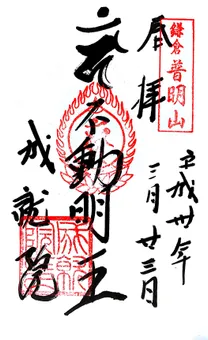 奉拝
鎌倉
普明山
平成卅年
三月廿三日
不動明王
成就院